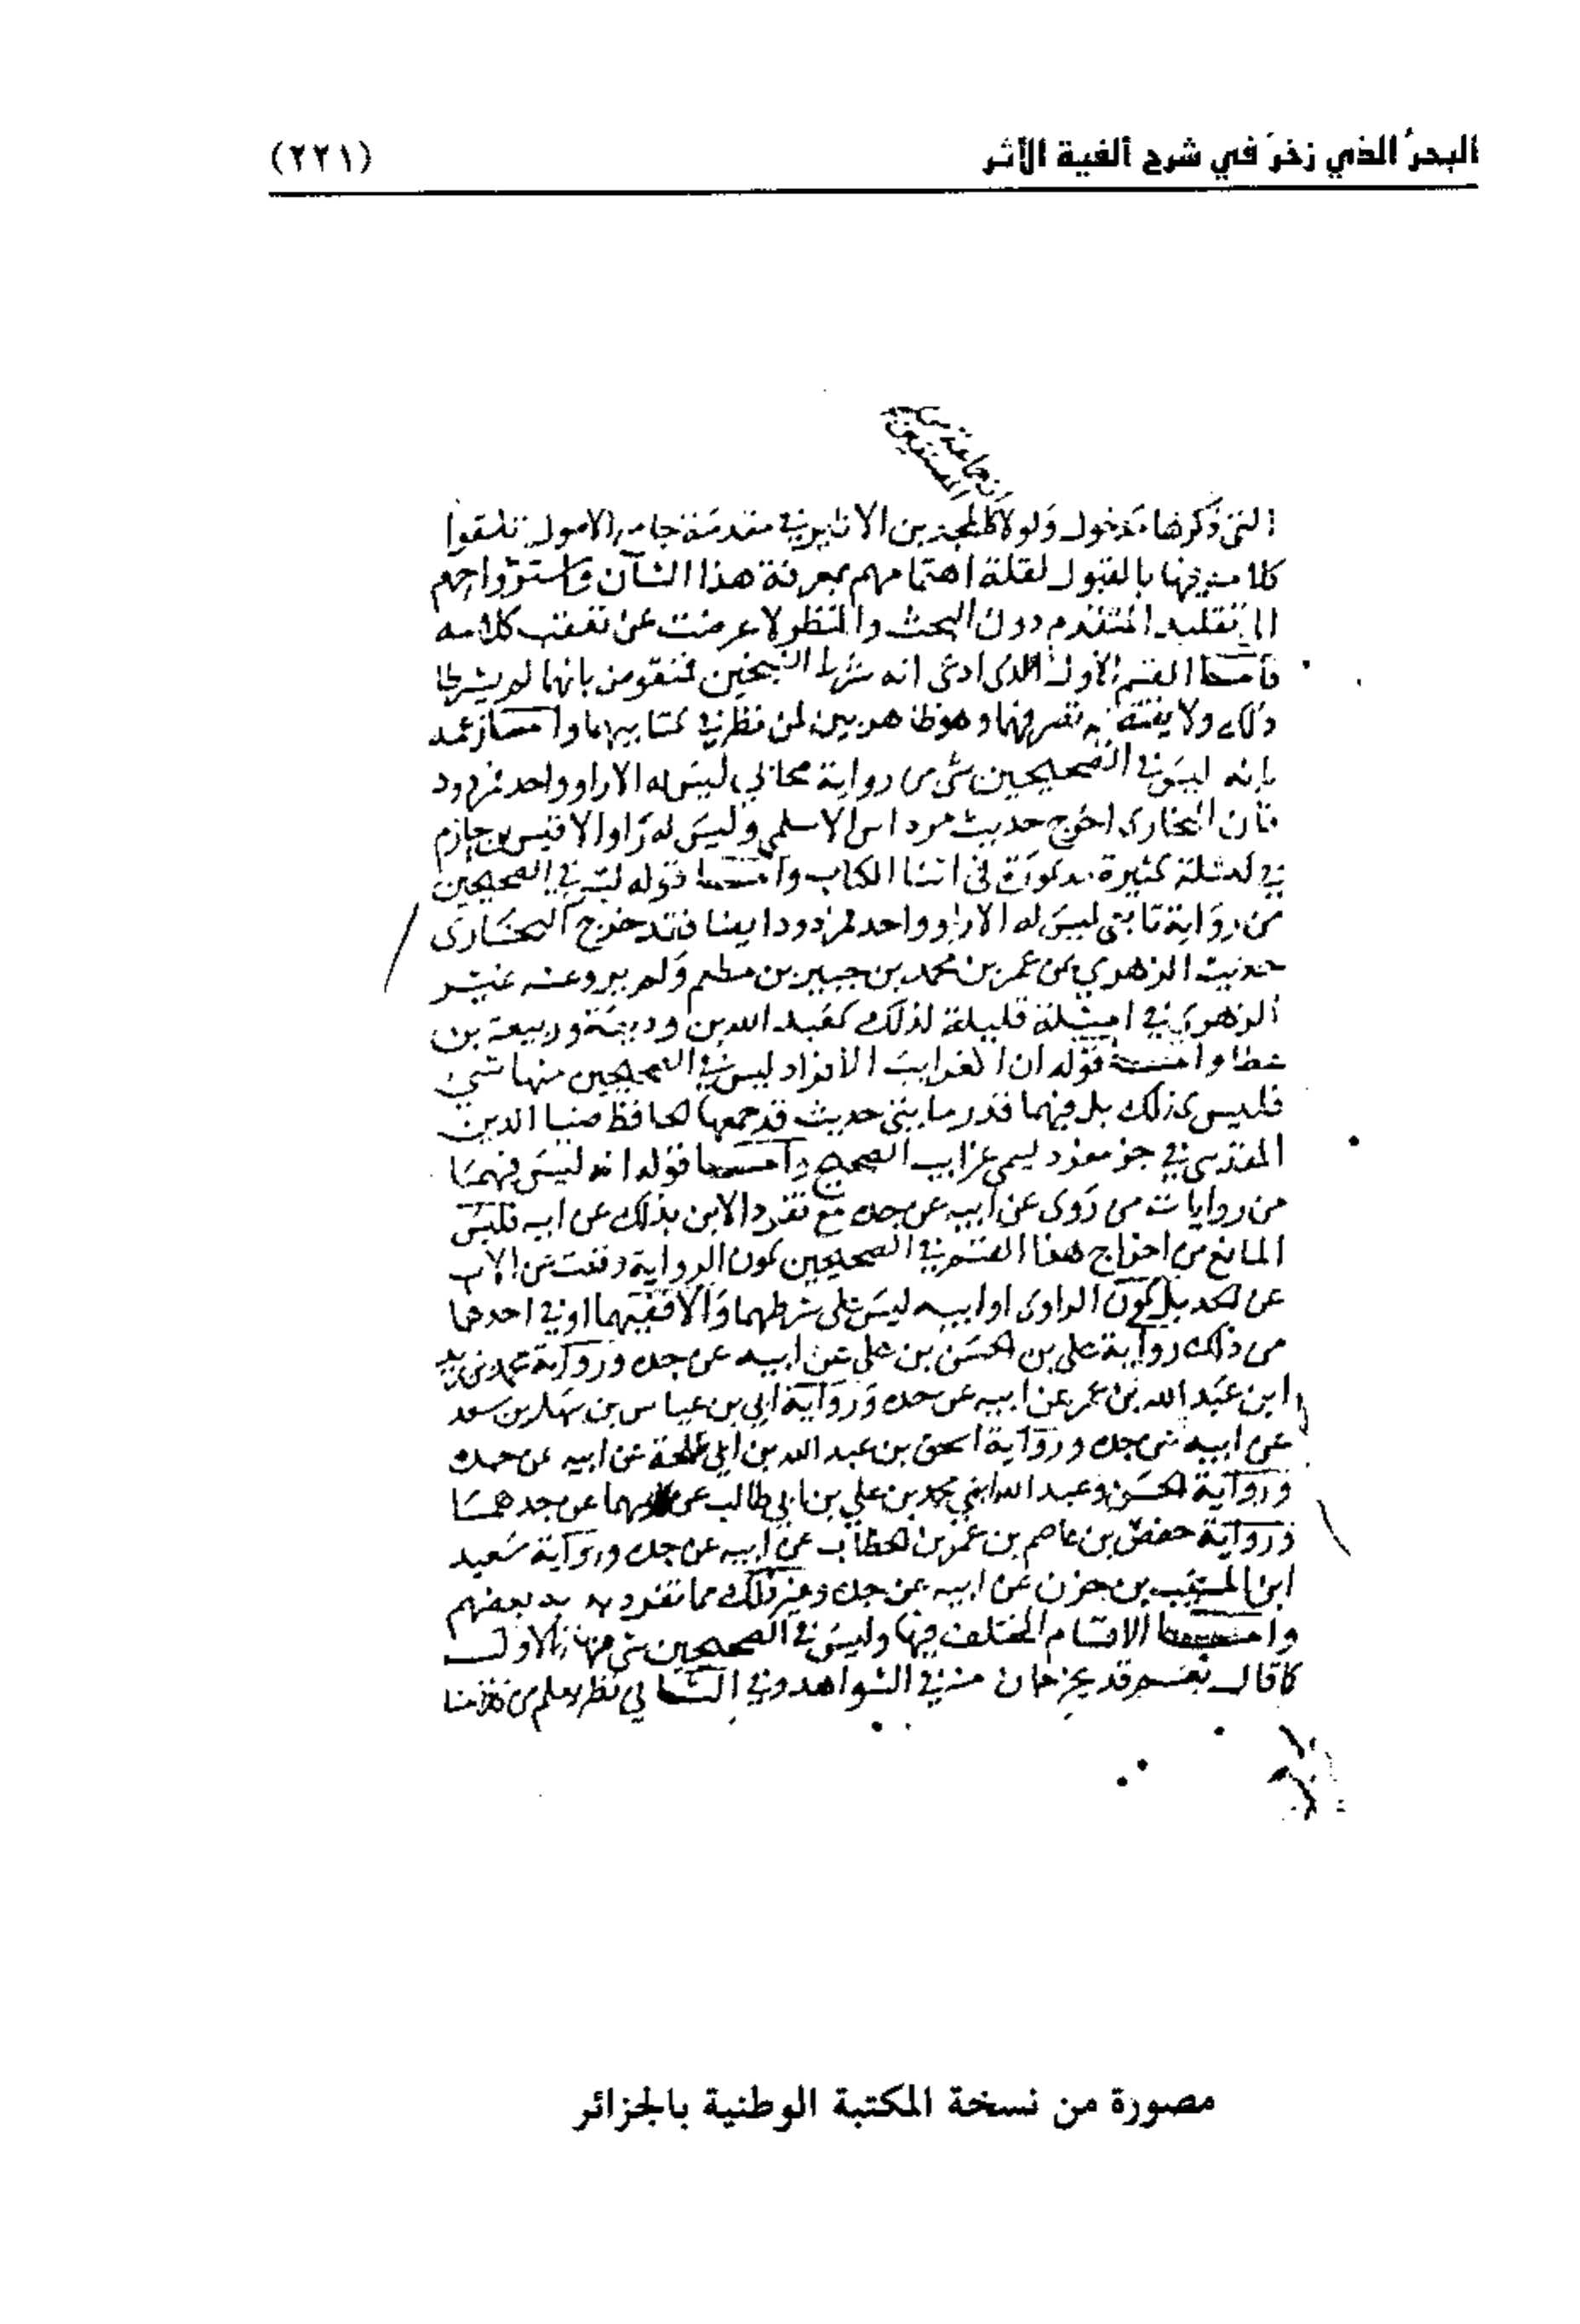 البحرُ الذي زخرَ في شرح ألفية الأثر
(٢٢١)
التي ذكرها مدخول ولولا ان جماعة من المصنفين كالمجد بن الاثير في مقدمة جامع الاصول تلقوا
كلامه فيها بالقبول لقلة اهتمامهم بمعرفة هذا الشأن واسترواحهم
الى تقليد المتقدم دون البحث والنظر لاعرضت عن تعقب كلامه
فاما القسم الاول الذى ادعى انه شرط الشيخين فمنقوض بانهما لم يشترطا
ذلك ولا يقتضيه تصرفهما وهو ظاهر بين لمن نظر في كتابيهما واما زعمه
بانه ليس في الصحيحين شى من رواية صحابي ليس له الا راو واحد فمردود
فان البخارى اخرج حديث مرداس الاسلمي وليس له راو الا قيس بن حازم
في امثلة كثيرة مذكورة فى اثنا الكتاب واما قوله ليس في الصحيحين
من رواية تابعى ليس له الا راو واحد فمردود ايضا فقد خرج البخارى
حديث الزهري عن عمر بن محمد بن جبير بن مطعم ولم يرو عنه غير
الزهرى في امثلة قليلة لذلك كعبد الله بن وديعة وربيعة بن
عطا واما قوله ان الغرايب الافراد ليس في الصحيحين منها شي
فليس كذلك بل فيهما قدر مايتى حديث قد جمعها الحافظ ضيا الدين
المقدسى في جز مفرد ليسمى غرايب الصحيح واما قوله انه ليس فيهما
من روايات من روى عن ابيه عن جده مع تفرد الابن بذلك عن ابيه فليس
المانع من اخراج هذا القسم في الصحيحين كون الرواية وقعت عن الاب
عن الجد بل كون الراوى او ابيه ليس على شرطهما والا ففيهما او في احدهما
من ذلك رواية على بن الحسن بن على عن ابيه عن جده ورواية محمد بن زيد
ابن عبد الله بن عمر عن ابيه عن جده ورواية ابي بن عباس بن سهل بن سعد
عن ابيه عن جده ورواية اسحق بن عبد الله بن ابي طلحة عن ابيه عن جده
ورواية الحسن وعبد الله ابني محمد بن علي بن ابي طالب عن ابيهما عن جدهما
ورواية حفص بن عاصم بن عمر بن الخطاب عن ابيه عن جده ورواية سعيد
ابن المسيب بن حزن عن ابيه عن جده وغير ذلك مما تفرد به بعضهم
واما الاقسام المختلف فيها وليس في الصحيحين شى منها فالاول
كما قال نعم قد يخرجان منه في الشواهد وفي الثاني نظر يعلم من كلامنا
مصورة من نسخة المكتبة الوطنية بالجزائر